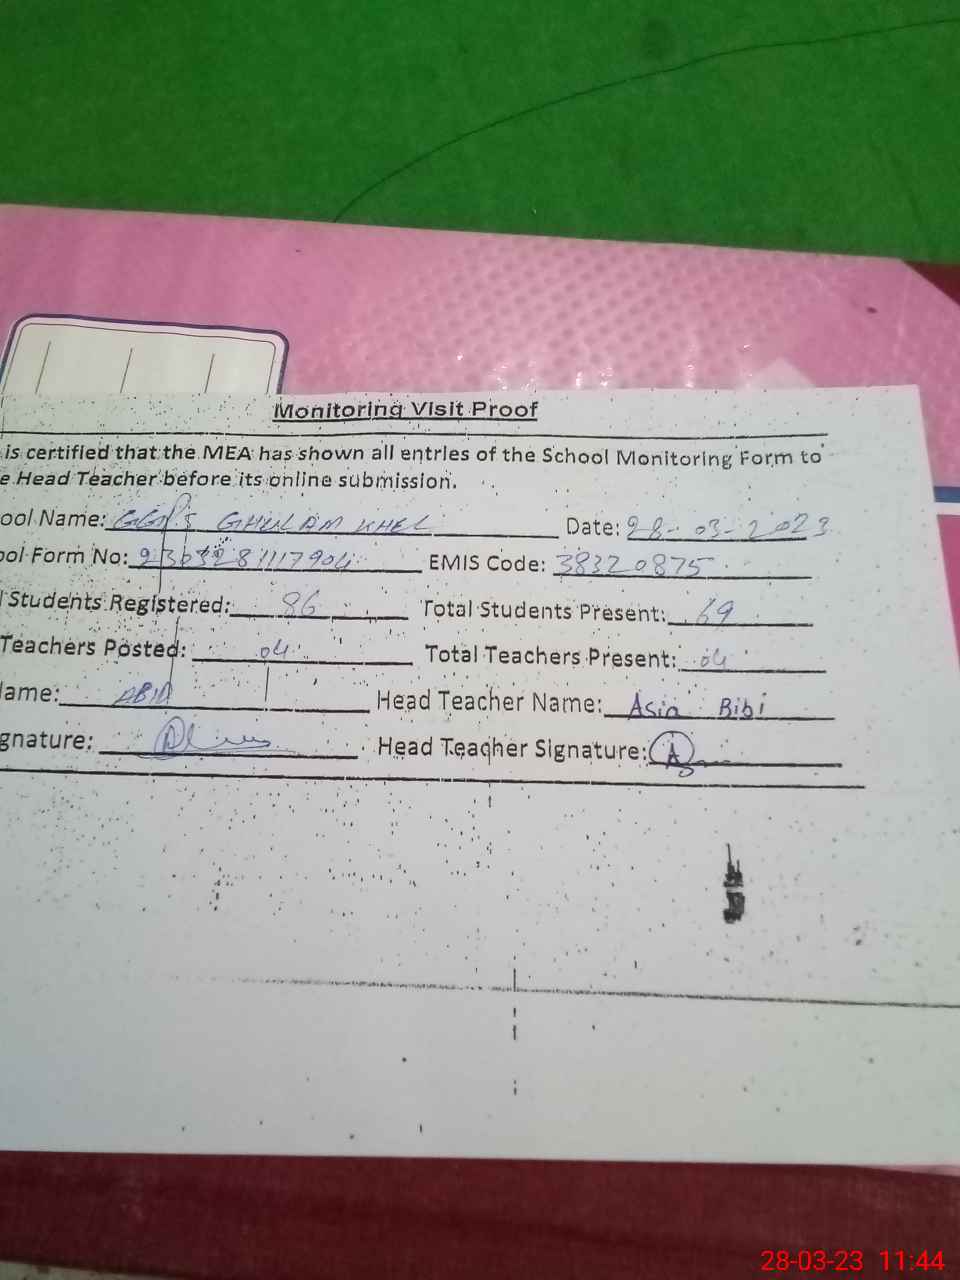 Monitoring Visit Proof
is certified that the MEA has shown all entries of the School Monitoring Form to
e Head Teacher before its online submission.
ool Name: GGPS GHULAM KHEL Date: 28-03-2023
ool Form No: EMIS Code: 38320875
l Students Registered: 86 Total Students Present: 69
Teachers Posted: 04 Total Teachers Present: 04
lame: ABID Head Teacher Name: Asia Bibi
gnature: Head Teacher Signature: A
28-03-23 11:44